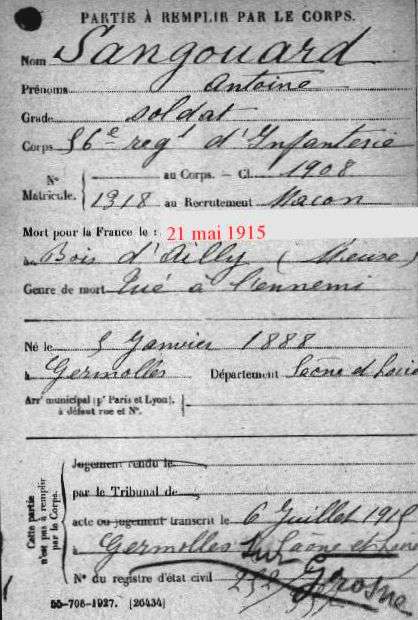 PARTIE À REMPLIR PAR LE CORPS.
Nom Sangouard
Prénoms Antoine
Grade soldat
Corps 56e regt d'Infanterie
N° au Corps. — Cl. 1908
Matricule. 1318 au Recrutement Macon
Mort pour la France le : 21 mai 1915
à Bois d'Ailly (Meuse)
Genre de mort Tué à l'ennemi
Né le 5 Janvier 1888
à Germolles Département Saône et Loire
Arr¹ municipal (p¹ Paris et Lyon),
à défaut rue et N°.
Cette partie
n'est pas à remplir
par le Corps.
Jugement rendu le
par le Tribunal de
acte ou jugement transcrit le 6 Juillet 1915
à Germolles sur Saône et Loire
Grosne
N° du registre d'état civil
55-708-1927. [26434]